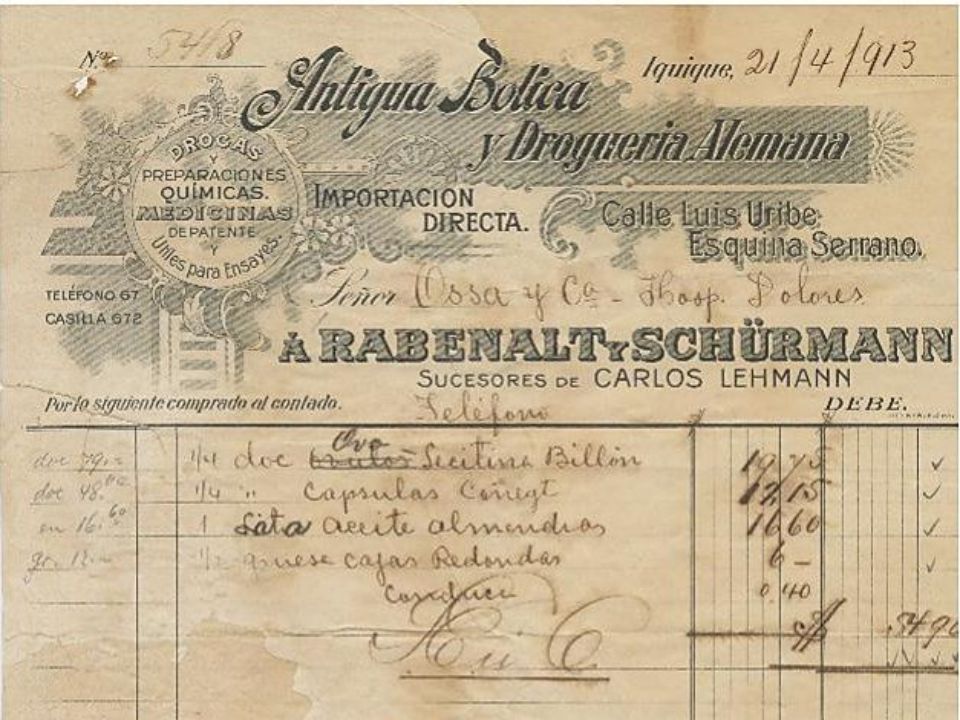 Nº 5418
Iquique, 21/4/913
Antigua Botica
y Droguería Alemana
DROGAS
Y
PREPARACIONES
QUÍMICAS.
MEDICINAS
DE PATENTE
Y
Utiles para Ensayes.
IMPORTACION
DIRECTA.
Calle Luis Uribe
Esquina Serrano.
TELÉFONO 67
CASILLA 672
Señor Ossa y Ca - Hosp. Dolores
Á RABENALT Y SCHÜRMANN
SUCESORES DE CARLOS LEHMANN
Por lo siguiente comprado al contado.
Teléfono
DEBE.
Ovo
doc 79.- 1/4 doc Lecitina Billón 19,75
doc 48. 1/4 " Capsulas 12,15
en 16.60 1 Lata aceite almendras 16,60
gr. 12.- 1/2 gruesa cajas Redondas 6 -
0,40
54,90